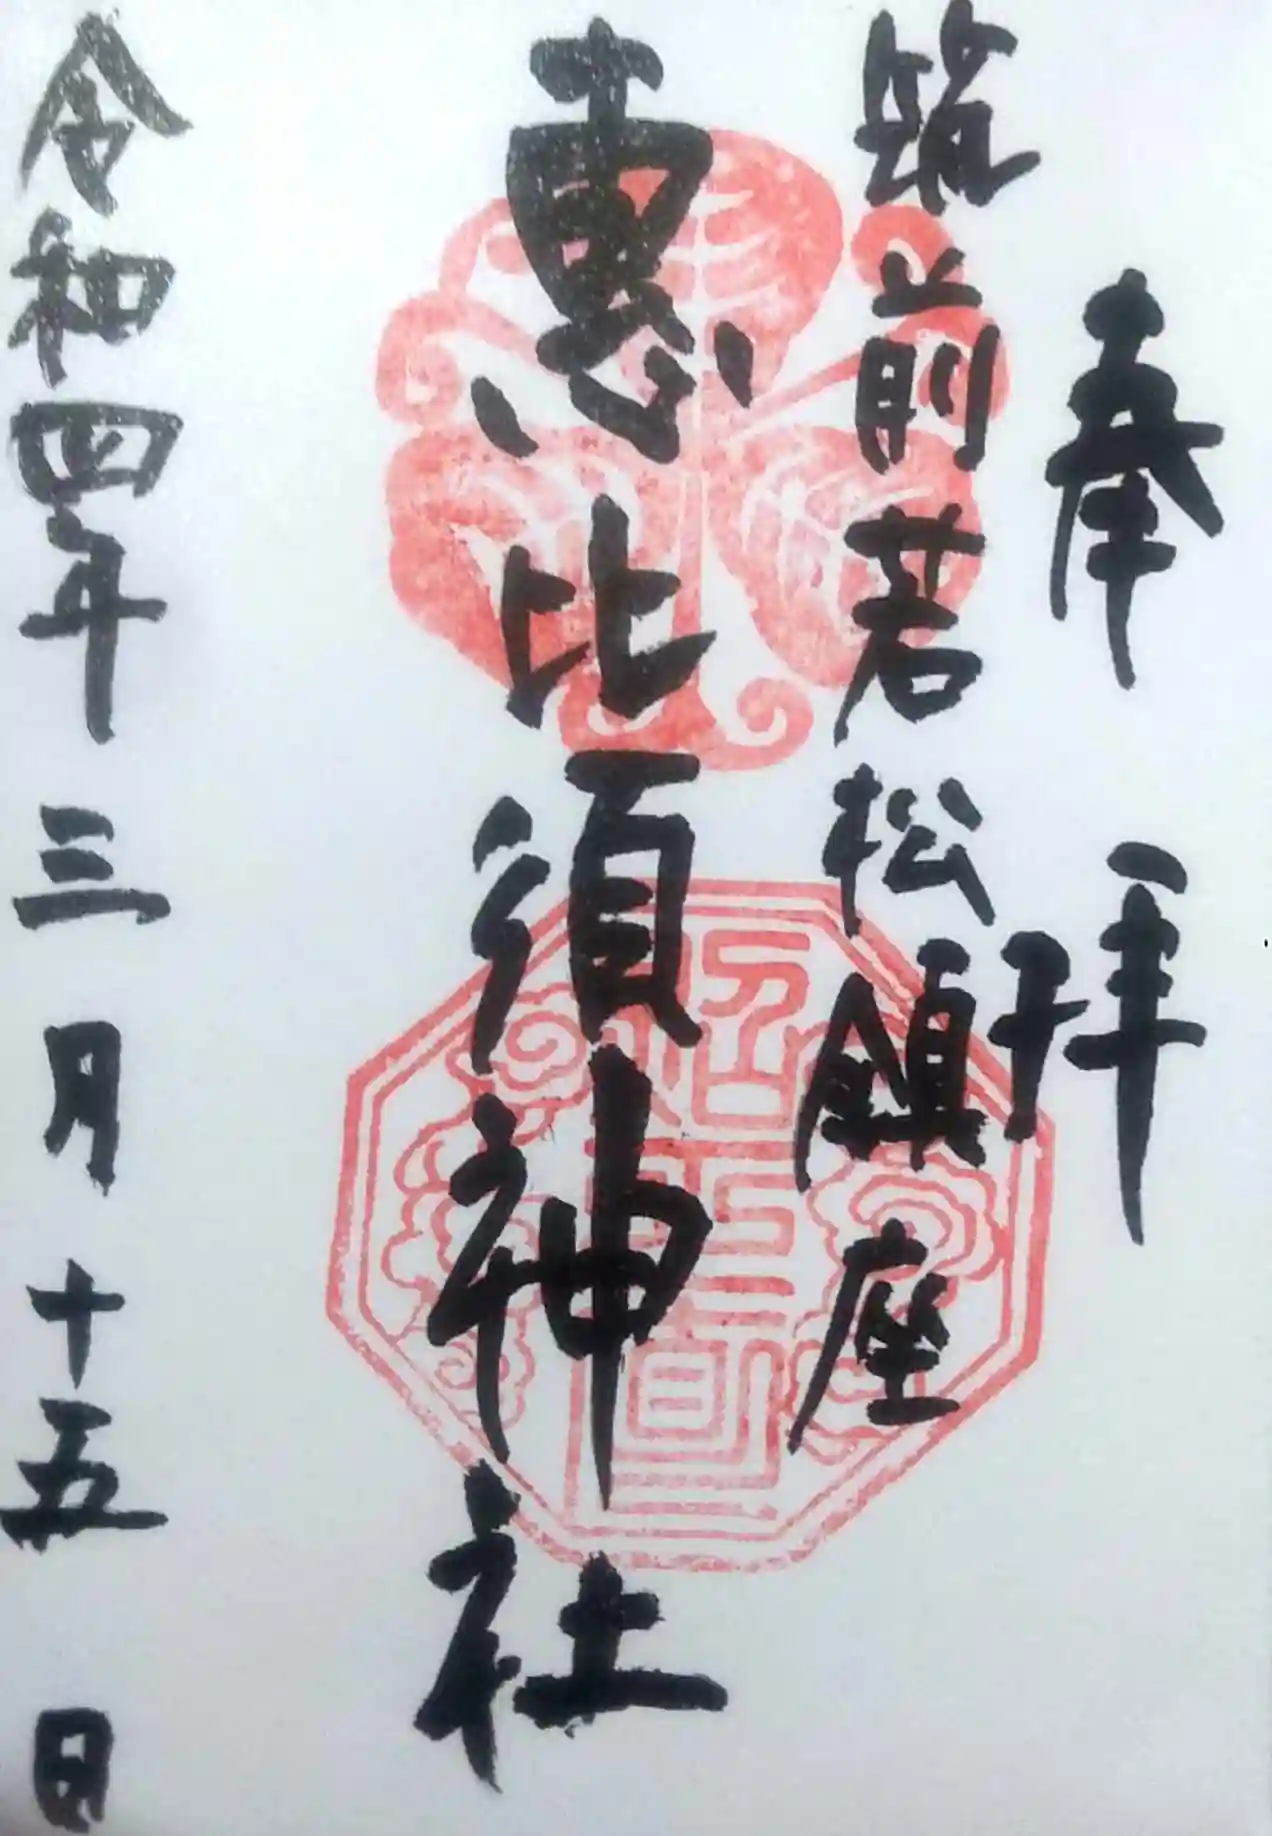 奉拝
筑前若松鎮座
惠比須神社
令和四年三月十五日